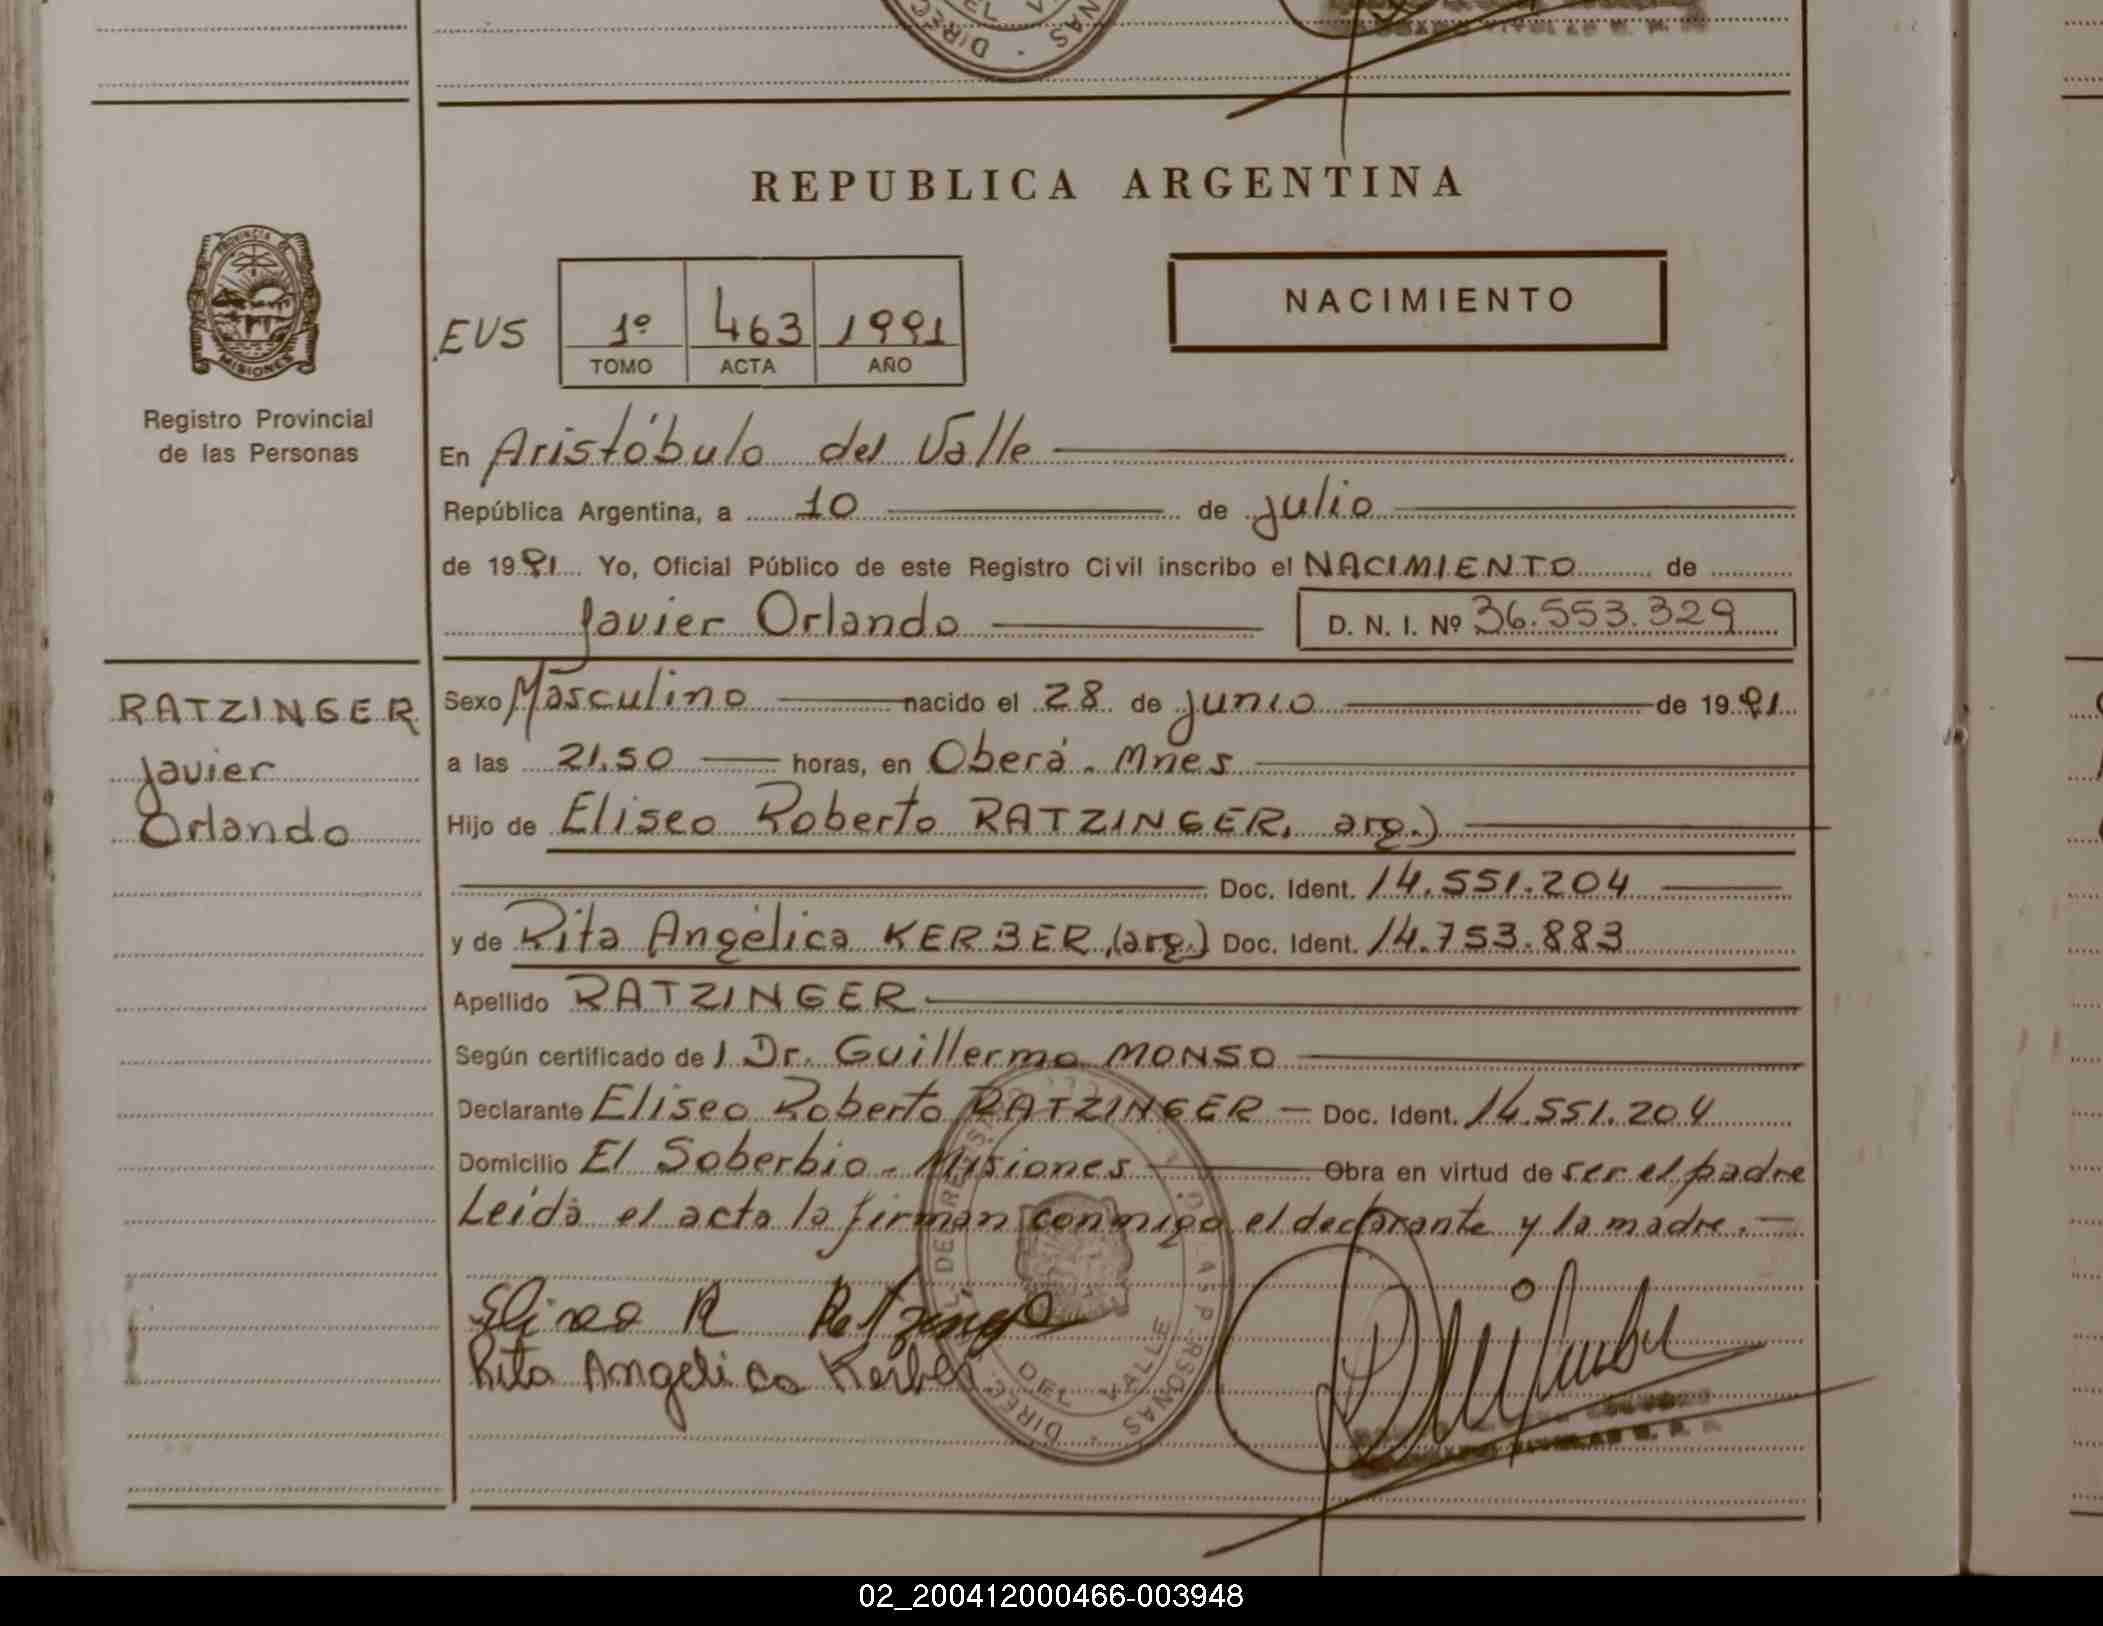 REPUBLICA ARGENTINA
PROVINCIA DE
MISIONES
Registro Provincial
de las Personas
EVS
1º 463 1991
TOMO ACTA AÑO
NACIMIENTO
En Aristóbulo del Valle
República Argentina, a 10 de julio
de 1991 Yo, Oficial Público de este Registro Civil inscribo el NACIMIENTO de
Javier Orlando D. N. I. Nº 36.553.329
RATZINGER
Javier
Orlando
Sexo Masculino nacido el 28 de junio de 1991
a las 21.50 horas, en Oberá. Mnes
Hijo de Eliseo Roberto RATZINGER, arg.)
Doc. Ident. 14.551.204
y de Rita Angélica KERBER, (arg.) Doc. Ident. 14.753.883
Apellido RATZINGER
Según certificado de l Dr. Guillermo MONSO
Declarante Eliseo Roberto RATZINGER - Doc. Ident. 14.551.204
Domicilio El Soberbio - Misiones Obra en virtud de ser el padre
Leída el acta la firman conmigo el declarante y la madre. -
Eliseo R Ratzinge
Rita Angelica Kerber
DEL VALLE
02_200412000466-003948